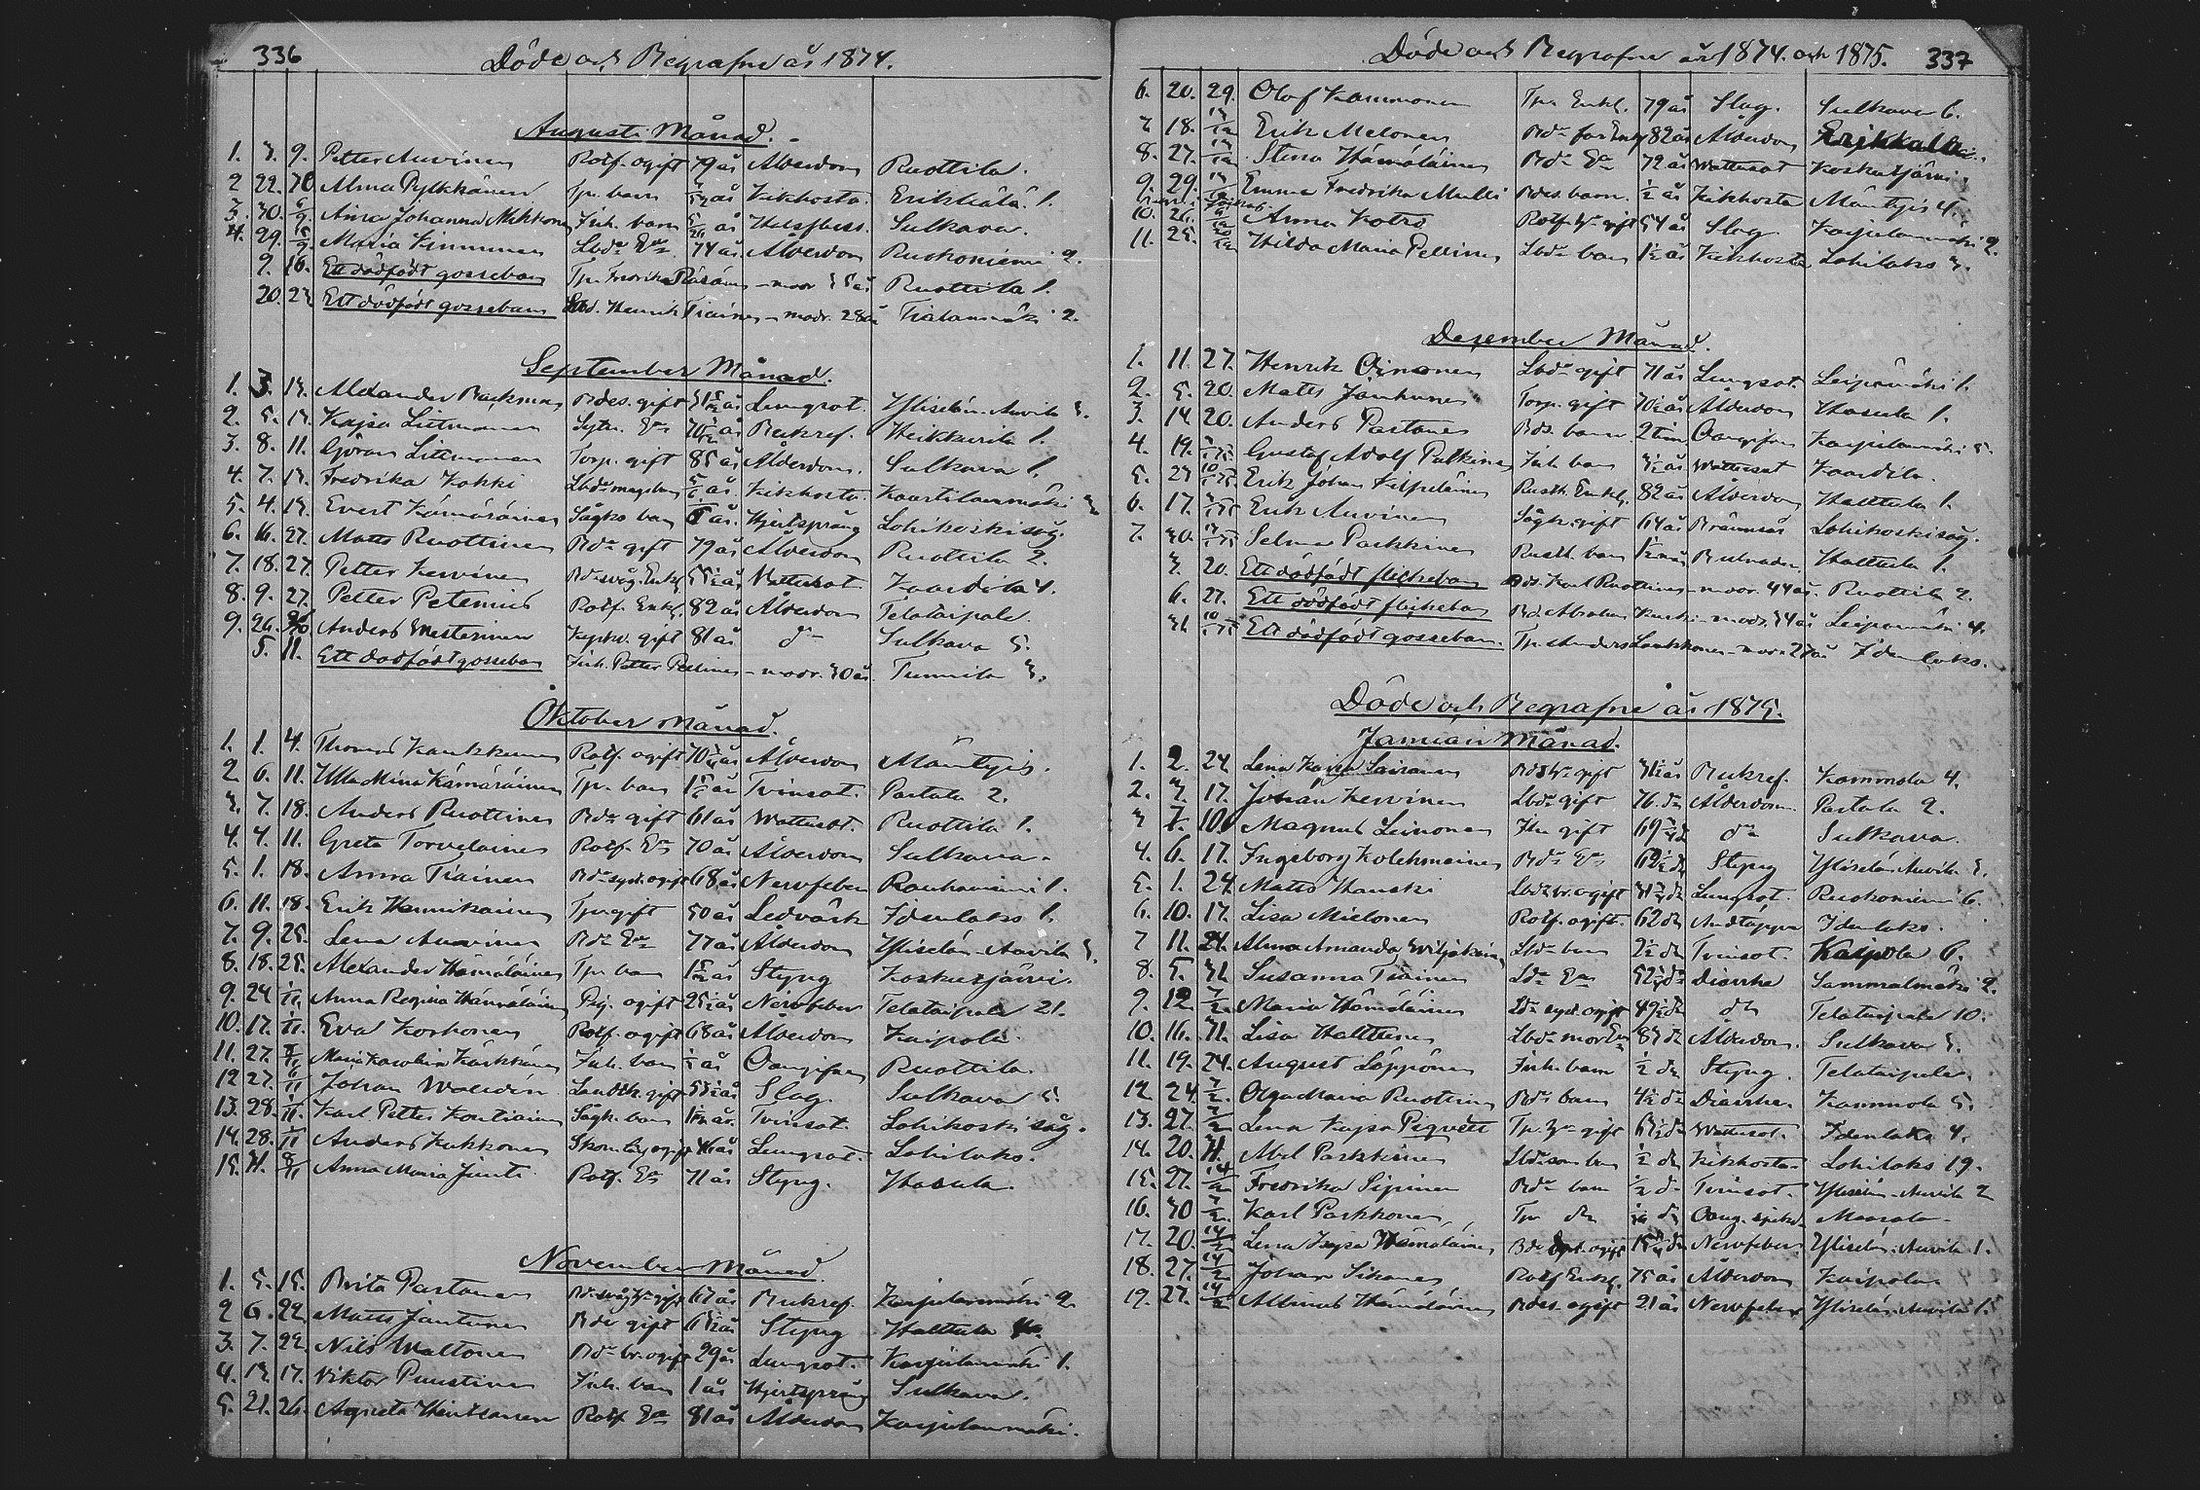 336
Döde och Begrafne år 1874.
Augusti Månad.
1. 3. 9. Petter Auvinen Rotf. ogift 79 år Ålderdom Ruottila.
2 22. 30 Alma Pylkkänen Tpr. barn år Kikhosta
3. 30. 6/9. Aina Johanna Mikkonen Inh. barn år Sulkava.
4. 29. Maria Kinnunen Lbdr Ea 74 år Ålderdom Ruokoniemi 2.
9. 16. Ett dödfödt gossebarn Tpr. Fredrika Räsänen moder 35 år Ruottila 1.
20. 23 Ett dödfödt gossebarn Lbd. Henrik Tiainen moder. 28 år Tiatanmäki 2.
September Månad.
1. 3. 13. Alexander Backman Bdes. gift år Lungsot. Yliselän-Auvila 3.
2. 5. 13. Kajsa Littmanen Sytn. Ea år Bukref. Heikkurila 1.
3. 8. 11. Göran Littmanen Torp. gift 85 år Ålderdom. Sulkava 1.
4. 7. 13. Fredrika Kokki Lbdr år. Kikhosta. Kaartilanmäki 3
5. 4. 13. Evert Kämäräinen Sågks barn år. Hjertsprång Lohikoski såg.
6. 16. 27. Matts Ruottinen Bdr gift 79 år Ålderdom Ruottila 2.
7. 18. 27. Petter Kervinen Bdesvåg. Enkl. år Vattusot Kaartila 4.
8. 9. 27. Petter Petenius Rotf. Enkl. 82 år Ålderdom Telataipale.
9. 26. Anders Westerinen gift 81 år do Sulkava 5.
5. 11. Ett dödfödt gossebarn Inh. Petter moder. 30 år Tunnila 3.
Oktober Månad.
1. 1. 4. Thomas Kaukkunen Rotf. ogift år Ålderdom Mäntyis.
2 6. 11. Ulla Mina Kämäräinen Tpr. barn år Tvinsot. Partala 2.
3. 7. 18. Anders Ruottinen Bdr gift 61 år Wattusot. Ruottila 1.
4. 4. 11. Greta Torvelainen Rotf. Ea 70 år Ålderdom Sulkava.
5. 1. 18. Anna Tiainen Bdr syst. ogift 68 år Nervfeber Rauhaniemi 1.
6. 11. 18. Erik Hannikainen Tpr gift 50 år Ledvärk Idenlaks 1.
7. 9. 25. Lena Auvinen Bdr Ea 77 år Ålderdom Yliselän-Auvila 3.
8. 18. 25. Alexander Hämäläinen Tpr barn år Styng Koskutjärvi.
9. 24 1/11 Anna Regina Hämäläinen Pig. ogift år Nervfeber Telataipale 21.
10. 17. 1/11. Eva Korhonen Rotf. ogift 68 år Ålderdom Kaipola.
11. 27. Maria Karolina Kärkkäinen Inh. barn år Oangifven Ruottila
12 27. Johan Walden gift år Slag. Sulkava 5.
13. 28. Karl Petter Kontiainen Sågk. barn år. Tvinsot. Lohikoski såg.
14. 28. Anders Kukkonen år Lungsot. Lohilaks.
15. 31. 8/11 Anna Maria Junti Rotf. Ea 71 år Styng. Hasula.
November Månad.
1. 5. 15. Brita Partanen 67 år Bukref. Karjulanmäki 2.
2 6. 22. Matts Jantunen Bdr gift år Styng Halttula
3. 7. 22. Nils Waltonen Bdr br. ogift 29 år Lungsot. Karjulanmäki 1.
4. 13. 17. Viktor Puustinen Inh. barn 1 år Hjertsprång Sulkava.
5. 21. 26. Agneta Hintsanen Rotf Ea 81 år Ålderdom Karjulanmäki.
Döde och Begrafne år 1874. och 1875. 337
6. 20. 29. Olof Kammonen Tpr Enkl. 79 år Slag. Sulkava 6.
7. 18. Erik Melonen Bdr far Enkl 82 år Ålderdom
8. 27. Stina Hämäläinen Bdr Ea 72 år Wattusot Koskutjärvi.
9. 29. Emma Fredrika Mulli Bdes. barn. 1/2 år Kikhosta Mäntyis 4.
10. 26. Anna Kotro Rotf. gift 54 år Slag. Karjulanmäki 2.
11. 25. Hilda Maria Pellinen Lbdr barn år Kikhosta Lohilaks 3.
Desember Månad.
1. 11. 27. Henrik Oinonen Lbdr gift 71 år Lungsot. Leipämäki 1.
2. 5. 20. Matts Jänkunen Torp. gift år Ålderdom Hasula 1.
3. 14 20. Anders Partanen Bds. barn 2 tim Oangifven Karjulanmäki 5.
4. 19. Gustaf Adolf Pulkinen Inh barn år Wattusot Kaartila.
5. 27 Erik Johan Kilpeläinen Rusth. Enkl. 82 år Ålderdom Halttula 1.
6. 17. Erik Auvinen Sågk. gift 64 år Brännsår Lohikoski såg.
7. 30. Selma Parkkinen Rusth. barn Halttula 1.
3. 20. Ett dödfödt flickebarn Bds. Karl Ruottinen moder 44 år. Ruottila 2.
6. 27. Ett dödfödt flickebarn Bd. Abraham moder. 34 år Leipämäki 4.
31 Ett dödfödt gossebarn. Tpr. Anders Laukkanen moder 27 år Idenlaks.
Döde och Begrafne år 1875.
Januari Månad.
1. 2. 24. Lena Kajsa Sairanen gift år Bukref. Kammola 4.
2. 3. 17. Johan Kervinen Lbdr gift 76. do Ålderdom. Partala 2.
3 7. 10 Magnus Leinonen Inh gift do Sulkava.
4. 6. 17. Ingeborg Kolehmainen Bdr Ea do Styng Yliselän Auvila 3.
5. 1. 24. Matts Hauski Lbdr br. ogift do Lungsot. Ruokoniemi 6.
6. 10. 17. Lisa Mielonen Rotf. ogift. 62 do Andtäppa Idenlaks.
7 11. 24. Alma Amanda Lbdr barn do Tvinsot. Kaipola 6.
8. 5. 31. Susanna Tiainen Ldr Ea do Diarrhe Sammalmäki 2.
9. 12 7/2 Maria Hämäläinen Ldr syst. ogift do do Telataipale 10.
10. 16. 31. Lisa Halttunen Lbdr mor Ea 83 do Ålderdom. Sulkava 3.
11. 19. 24. August Löppönen Inh. barn 1/2 do Styng. Telataipale.
12 24. 7/2. Olga Maria Ruottinen Bdr barn do Diarrhe. Kammola 5.
13. 27. 7/2. Lena Kajsa Tpr. gift do Wattusot. Idenlaks 4.
14. 20. 31. Abel Parkkinen barn 1/2 do Kikhosta Lohilaks 19.
15. 27. 14/2 Fredrika Sipinen Bdr barn 1/2 do Tvinsot. Yliselän-Auvila 2
16. 30 7/2. Karl Parkkonen Tpr do do Maarala.
17. 20. 14/2 Lena Kajsa Hämäläinen ogift do Nervfeber. Yliselän-Auvila 1.
18. 27. 14/2 Johan Sikanen Rotf Enkl. 75 år Ålderdom Kaipola.
19. 27. 14/2 Albinus Hämäläinen Bdes. ogift 21 år Nervfeber Yliselän Auvila 1.